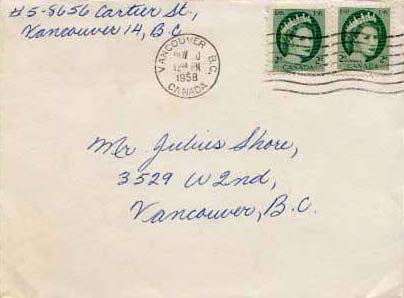 #5-8656 Cartier St.,
Vancouver 14, B.C.
VANCOUVER B.C.
1958
CANADA
2 CANADA
2 CANADA
Mr Julius Shore,
3529 W 2nd,
Vancouver, B.C.